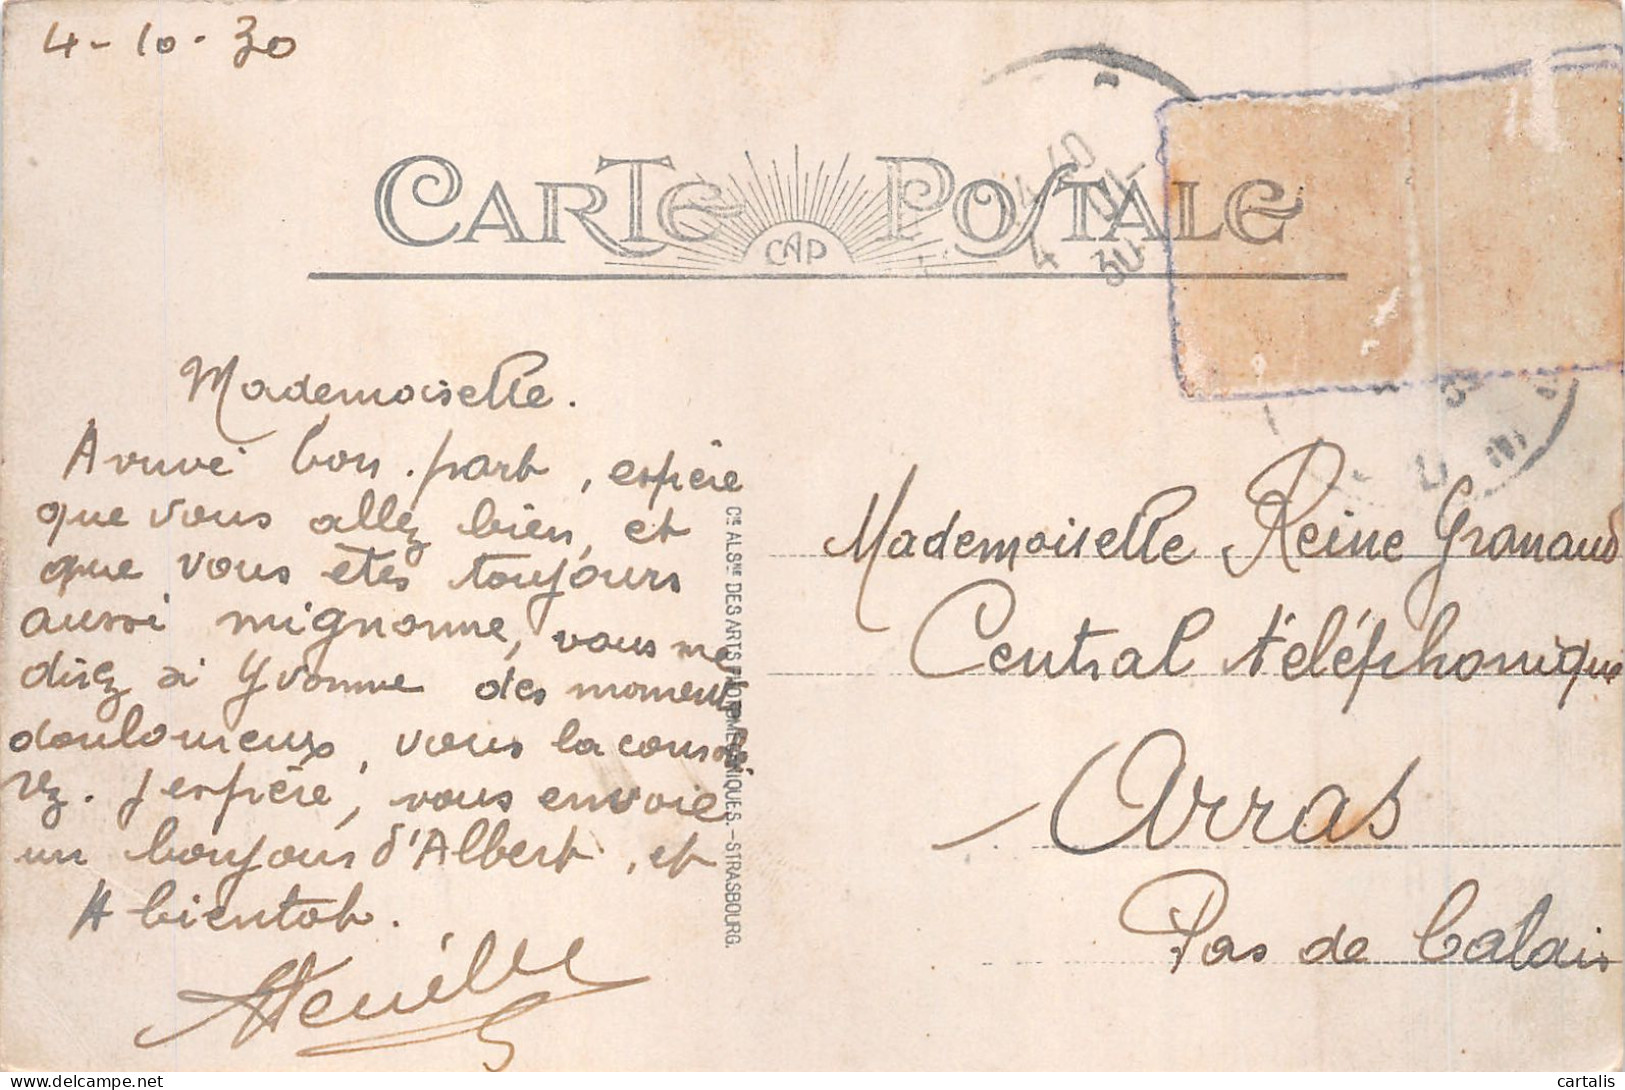 4-10-30
CARTE POSTALE
CAP
14 40
4
30
Mademoiselle.
Arrivé bon port, espère
que vous allez bien, et
que vous êtes toujours
aussi mignonne, vous me
direz si Yvonne des moments
douloureux, vous la console
rez. J'espère, vous envoie
un bonjour d'Albert, et
A bientot.
Cie ALSNE DES ARTS PHOTOMÉCANIQUES.-STRASBOURG.
Mademoiselle Reine Granaud
Central téléphonique
Arras
Pas de Calais
cartalis